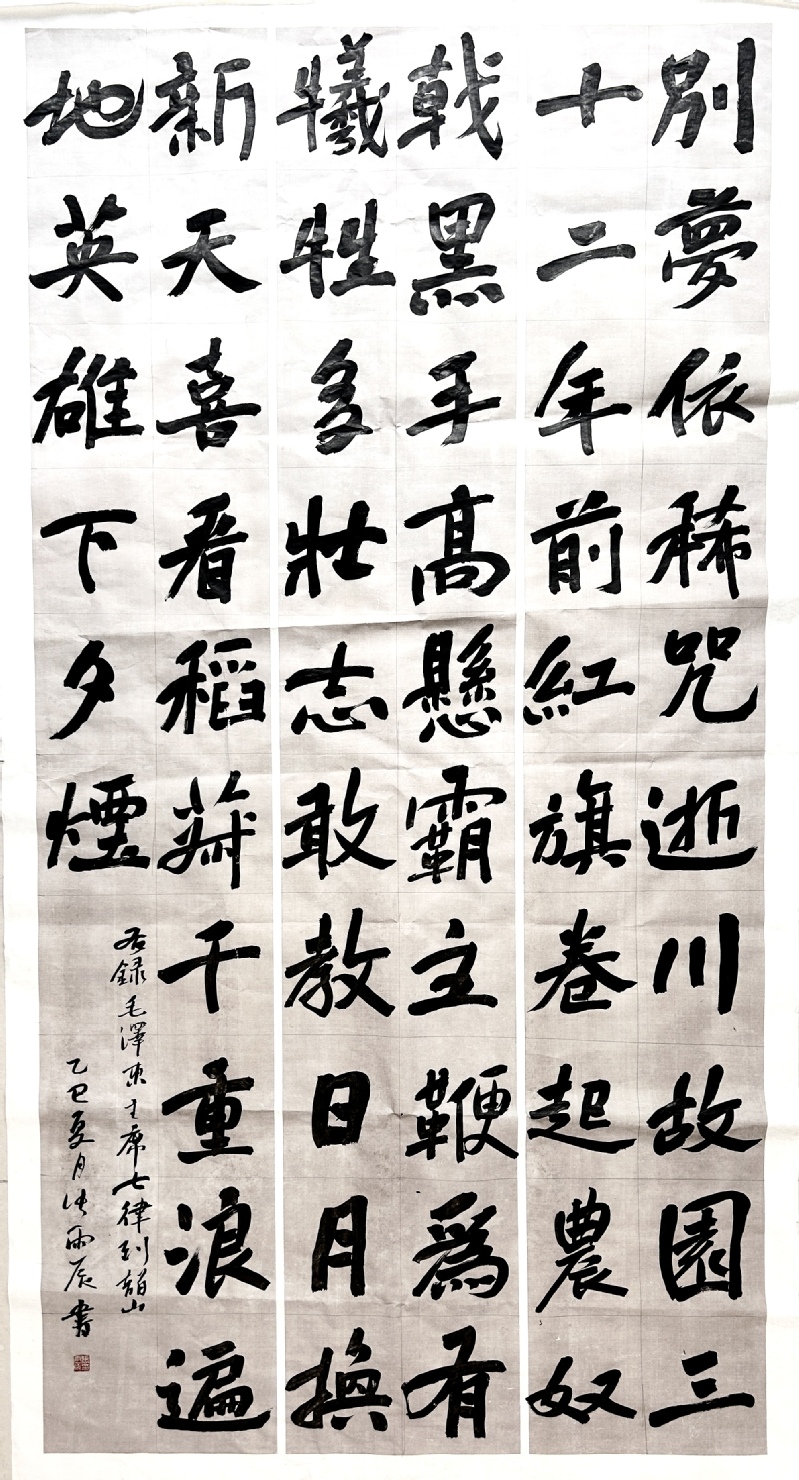 別夢依稀咒逝川故園三
十二年前紅旗卷起農奴
戟黑手高懸霸主鞭爲有
犧牲多壯志敢教日月換
新天喜看稻菽千重浪遍
地英雄下夕煙
右錄毛澤東主席七律到韶山
乙巳夏月張雨辰書